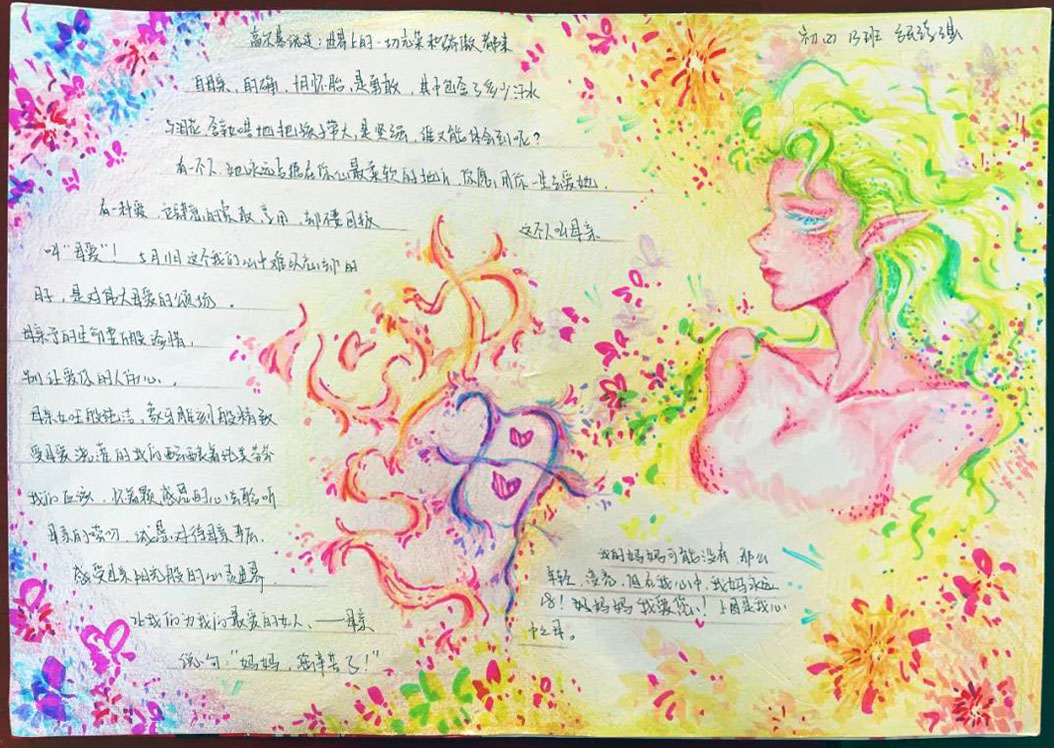 高尔基说过：世界上的一切光荣和骄傲都来
初四 13班
自母亲，的确，十月怀胎，是勇敢，其中包含了多少汗水
与泪花，含辛如哺地把孩子带大，是坚强，谁又能体会到呢？
有一个人，她永远占据在你心最柔软的地方，你愿用你一生去爱她，
有一种爱，它让你肆意的索取、享用，却不要回报
这个人叫母亲
叫“母爱”！5月11日这个我们心中难以忘却的
日子，是对伟大母爱的颂扬。
母亲予的生命要万般珍惜，
别让爱你的人伤心，
母亲女王般纯洁，象牙雕刻般精致
受母爱浇灌的我们
我们应该，怀着颗感恩的心去聆听
母亲的唠叨，试最对待母亲
感受母亲阳光般的心灵世界，
让我们为我们最爱的女人，——母亲
说一句：“妈妈，您辛苦了！”
我的妈妈可能没有那么
年轻，漂亮，但在我心中，我妈永远
18！妈妈妈我爱您！上图是我心
中之母。